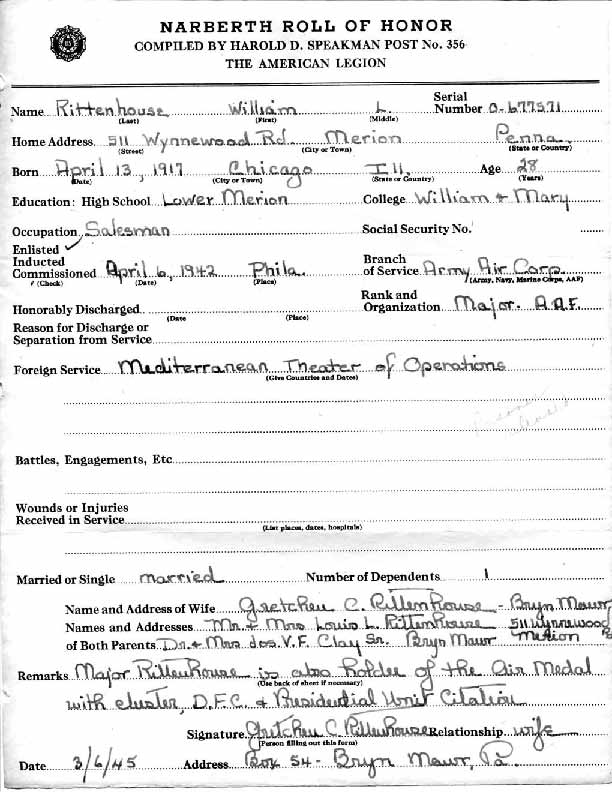 NARBERTH ROLL OF HONOR
COMPILED BY HAROLD D. SPEAKMAN POST No. 356
THE AMERICAN LEGION
Name Rittenhouse William L. Serial Number O-677571
(Last) (First) (Middle)
Home Address 511 Wynnewood Rd. Merion Penna.
(Street) (City or Town) (State or Country)
Born April 13, 1917 Chicago Ill. Age 28
(Date) (City or Town) (State or Country) (Years)
Education: High School Lower Merion College William & Mary
Occupation Salesman Social Security No.
Enlisted ✓
Inducted
Commissioned April 6, 1942 Phila. Branch of Service Army Air Corp.
✓ (Check) (Date) (Place) (Army, Navy, Marine Corps, AAF)
Honorably Discharged Rank and Organization Major. A.A.F.
(Date (Place)
Reason for Discharge or
Separation from Service
Foreign Service Mediterranean Theater of Operations
(Give Countries and Dates)
Battles, Engagements, Etc
Wounds or Injuries
Received in Service
(List places, dates, hospitals)
Married or Single married Number of Dependents 1
Name and Address of Wife Gretchen C. Rittenhouse - Bryn Mawr,
Names and Addresses Mr. & Mrs Louis L. Rittenhouse 511 Wynnewood
of Both Parents Dr. & Mrs Jos. V. F. Clay Sr. Bryn Mawr Merion Pa
Remarks Major Rittenhouse is also holder of the Air Medal
(Use back of sheet if necessary)
with cluster, D.F.C. & Presidential Unit Citation
Signature Gretchen C. Rittenhouse Relationship wife
(Person filling out this form)
Date 3/6/45 Address Box 54 - Bryn Mawr, Pa.